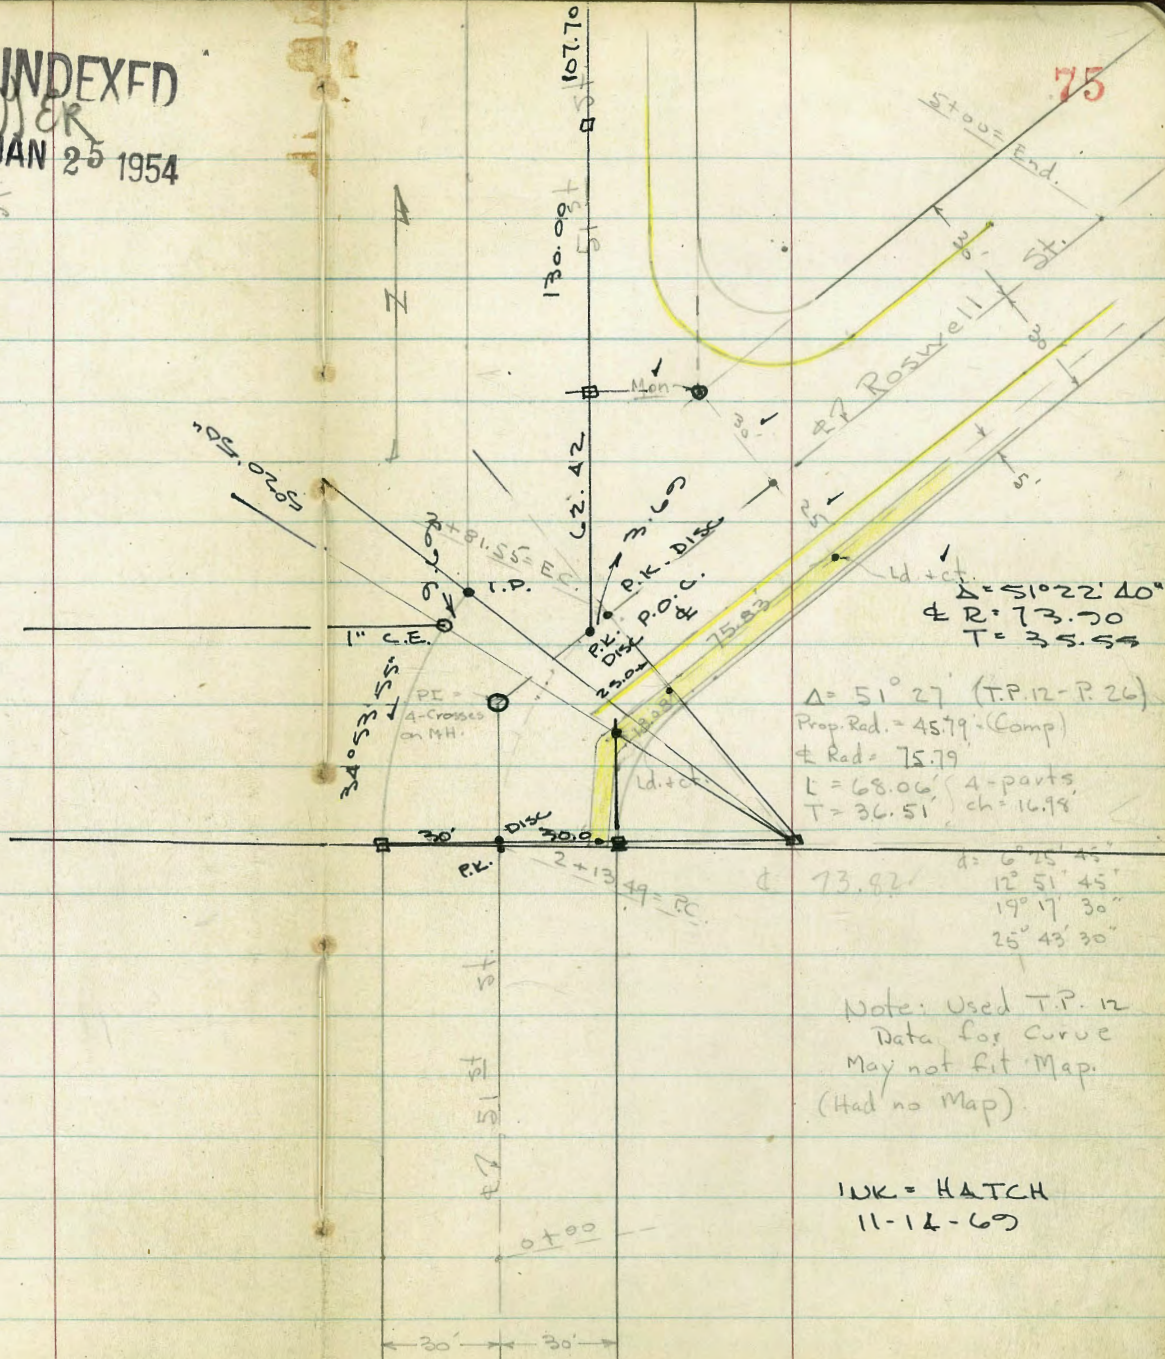 INDEXED
JAN 25 1954
75
107.70
St
130.00
51 St
5+00= End.
30'
30'
℄ Roswell St.
N
Mon
30'
62.42
50°20'50"
3+81.55= E.C.
9.69
3.69
P.K. DISC
P.O.C.
℄
25'
5'
Ld. + ct.
I.P.
1" C.E.
P.K.
DISC
25.0
75.83
Δ= 51°22'40"
℄ R= 73.90
T= 35.55
34°53'55"
PI =
4-Crosses
on M.H.
18.08
Δ= 51° 27' (T.P.12-P. 26)
Prop. Rad. = 45.79' (Comp)
℄ Rad= 75.79'
L = 68.06' 4-parts
T = 36.51' ch= 16.98'
Ld. + ct.
30'
DISC
30.0
P.K.
2+13.49= P.C.
℄ 73.82
d= 6° 25' 45"
12° 51' 45"
19° 17' 30"
25° 43' 30"
℄ 51 st St.
Note: Used T.P. 12
Data for Curve
May not fit Map.
(Had no Map)
INK = HATCH
11-14-69
0+00
30'
30'